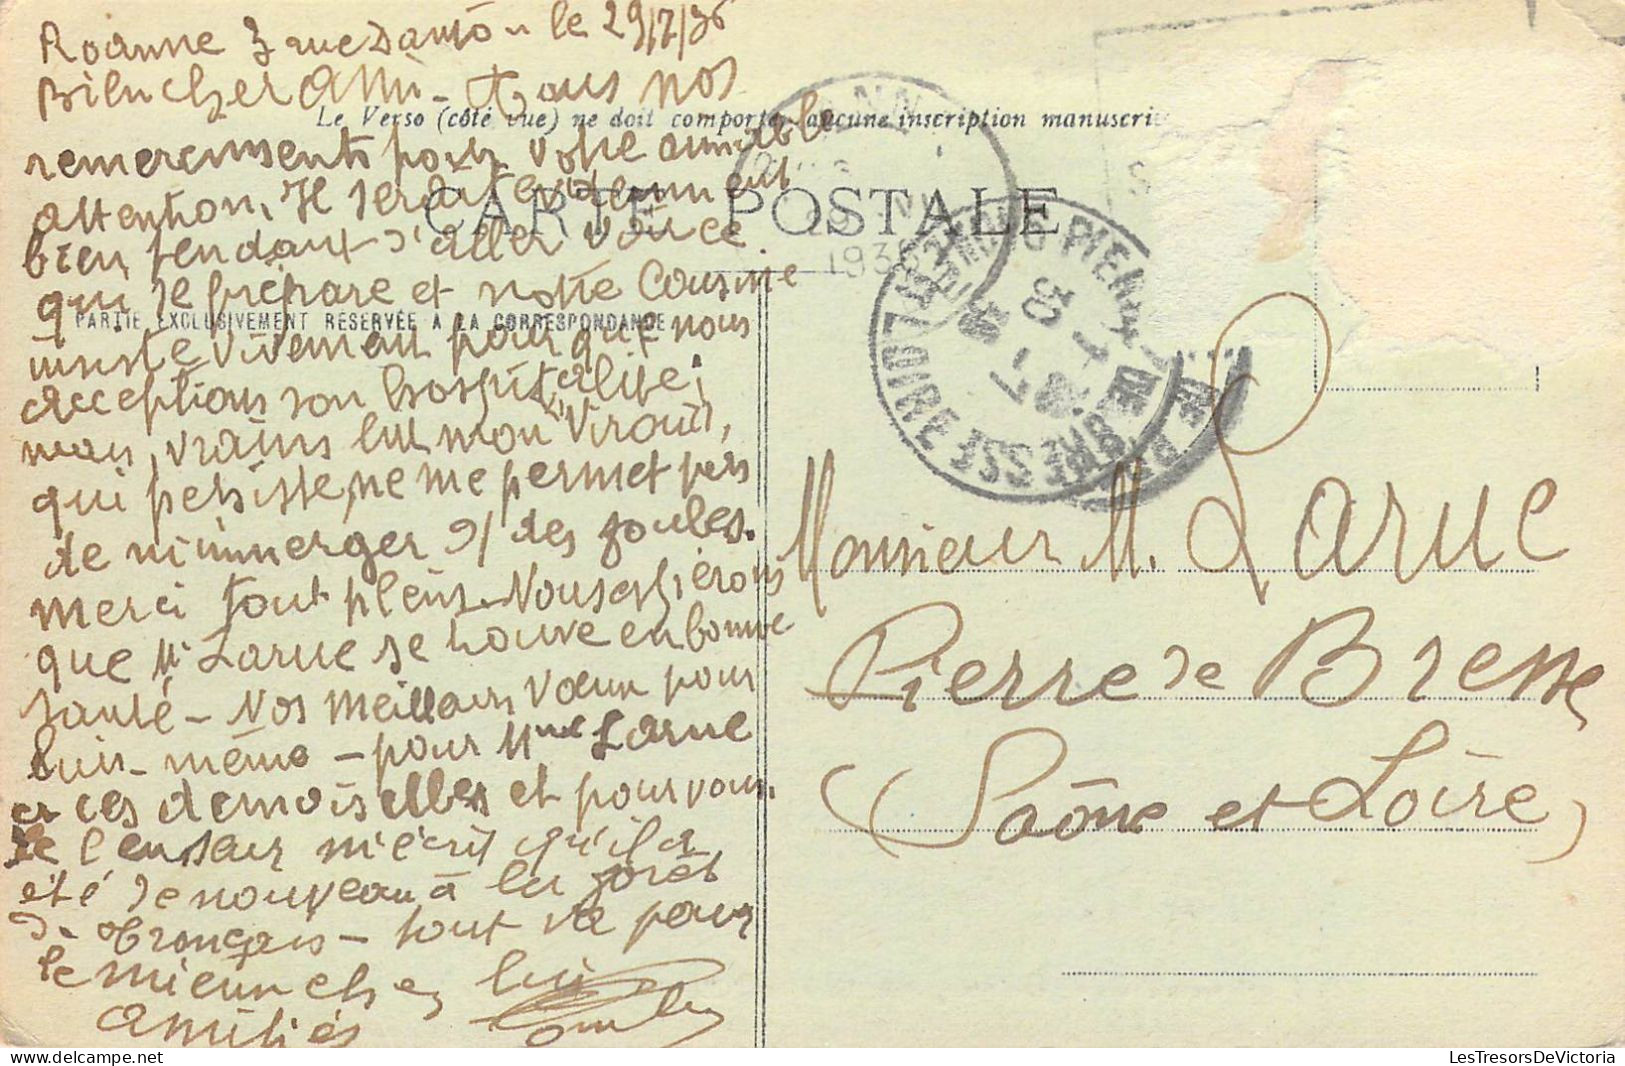 Roanne 3 rue Danton le 29/7/36
Bien cher Ami - Tous nos
Le Verso (côté vue) ne doit comporter aucune inscription manuscri
remerciements pour votre aimable
attention. Il serait évidemment
CARTE POSTALE
bien tendant d'aller voir ce
qui se prépare et notre Cousine
PARTIE EXCLUSIVEMENT RÉSERVÉE A LA CORRESPONDANCE
insiste vivement pour que nous
acceptions son hospitalité;
mais, vrains lui mon
qui persiste, ne me permet pas
de m'immerger des foules.
merci tout plein. Nous espérons
que Mr Larue se trouve en bonne
santé - Nos meilleurs vœux pour
lui-même - pour Mme Larue
et ces demoiselles et pour vous.
m'écrit qu'il a
été de nouveau à la forêt
de Tronçais - tout va pour
le mieux chez lui
Amitiés
Monsieur M. Larue
Pierre de Bresse
(Saône et Loire)
1936
PIERRE-DE-BRESSE
SAÔNE-ET-LOIRE
30 -7
LesTresorsDeVictoria